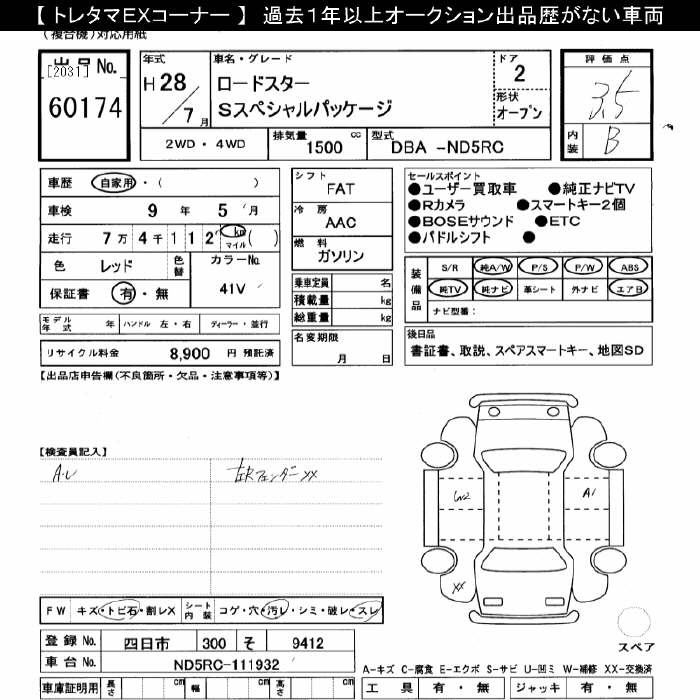 【 トレタマＥＸコーナー 】 過去１年以上オークション出品歴がない車両
(複合機) 対応用紙
出品 No.
[2031]
60174
年式
H 28 / 7 月
車名・グレード
ロードスター
Sスペシャルパッケージ
ドア
2
形状
オープン
評価点
3.5
内装
B
2WD・4WD
排気量 1500 cc
型式 DBA -ND5RC
車歴 自家用・( )
車検 9 年 5 月
走行 7万 4千 1 1 2 km マイル ( )
色 レッド 色替
カラーNo.
41V
保証書 有・無
シフト
FAT
冷房
AAC
燃料
ガソリン
乗車定員 名
積載量 kg
総重量 kg
セールスポイント
●ユーザー買取車 ●純正ナビTV
●Rカメラ ●スマートキー2個
●BOSEサウンド ●ETC
●パドルシフト ●
装備品
S/R 純A/W P/S P/W ABS
純TV 純ナビ 革シート 外ナビ エアB
ナビ型番：
モデル年式 年 ハンドル 左・右 ディーラー・並行
リサイクル料金 8,900 円 預託済
名変期限
月 日
後日品
書証書、取説、スペアスマートキー、地図SD
【出品店申告欄(不良箇所・欠品・注意事項等)】
【検査員記入】
A.U
左Rフェンダーxx
W2
A1
XX
スペア
FW キズ・トビ石・割レX シート内装 コゲ・穴・汚レ・シミ・破レ・スレ
登録 No. 四日市 300 そ 9412
車台 No. ND5RC-111932
車庫証明用 長さ cm 幅 cm 高さ cm
A-キズ C-腐食 E-エクボ S-サビ U-凹ミ W-補修 XX-交換済
工具 有・無 ジャッキ 有・無